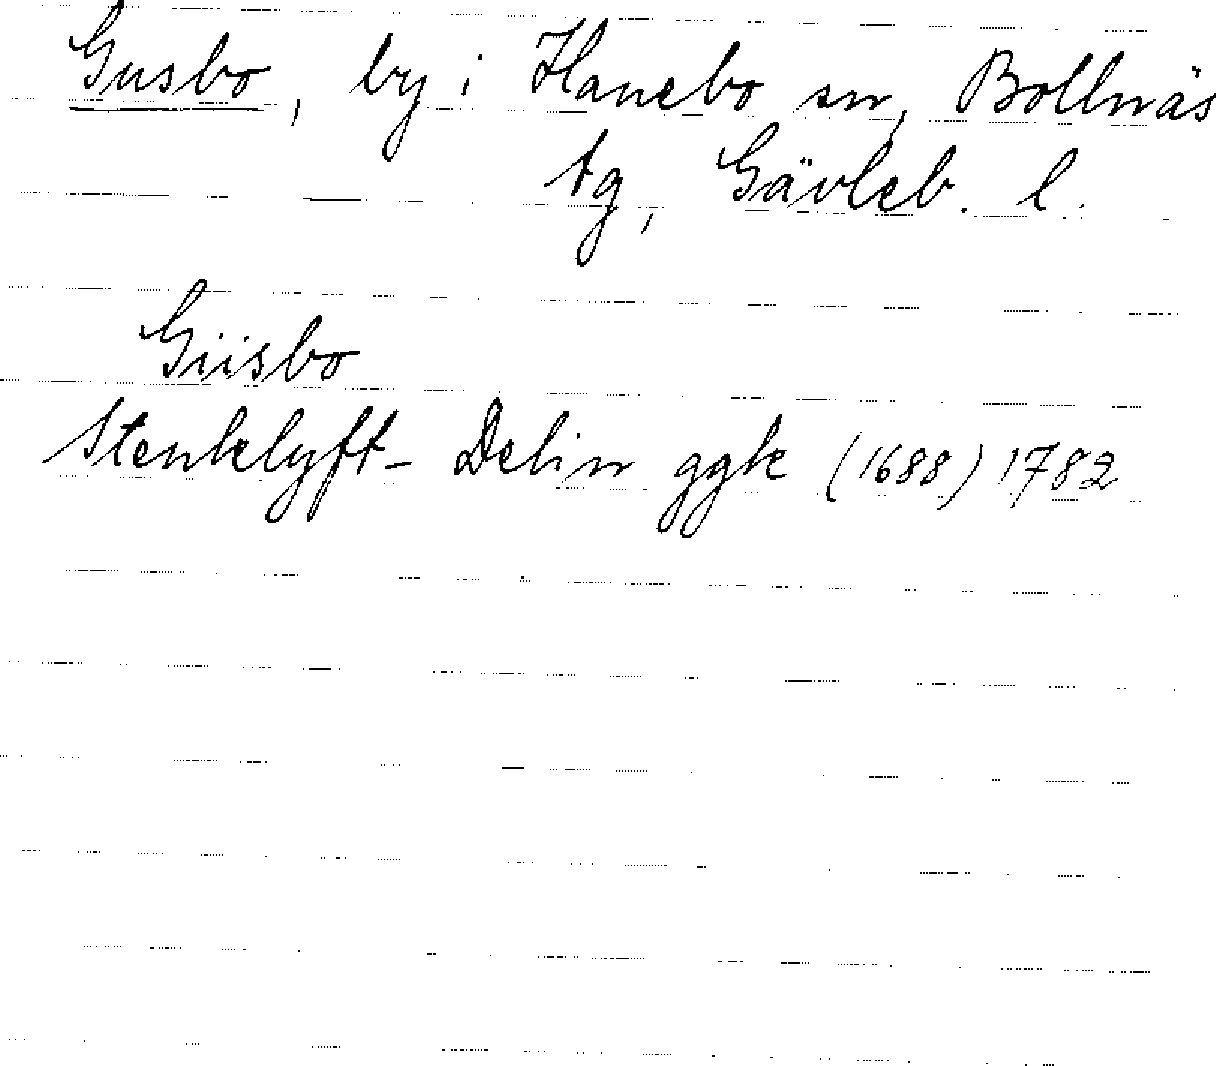 Gusbo, by i Hanebo sn, Bollnäs
tg, Gävleb. l.
Giisbo
Stenklyft- Delin ggk (1688) 1782